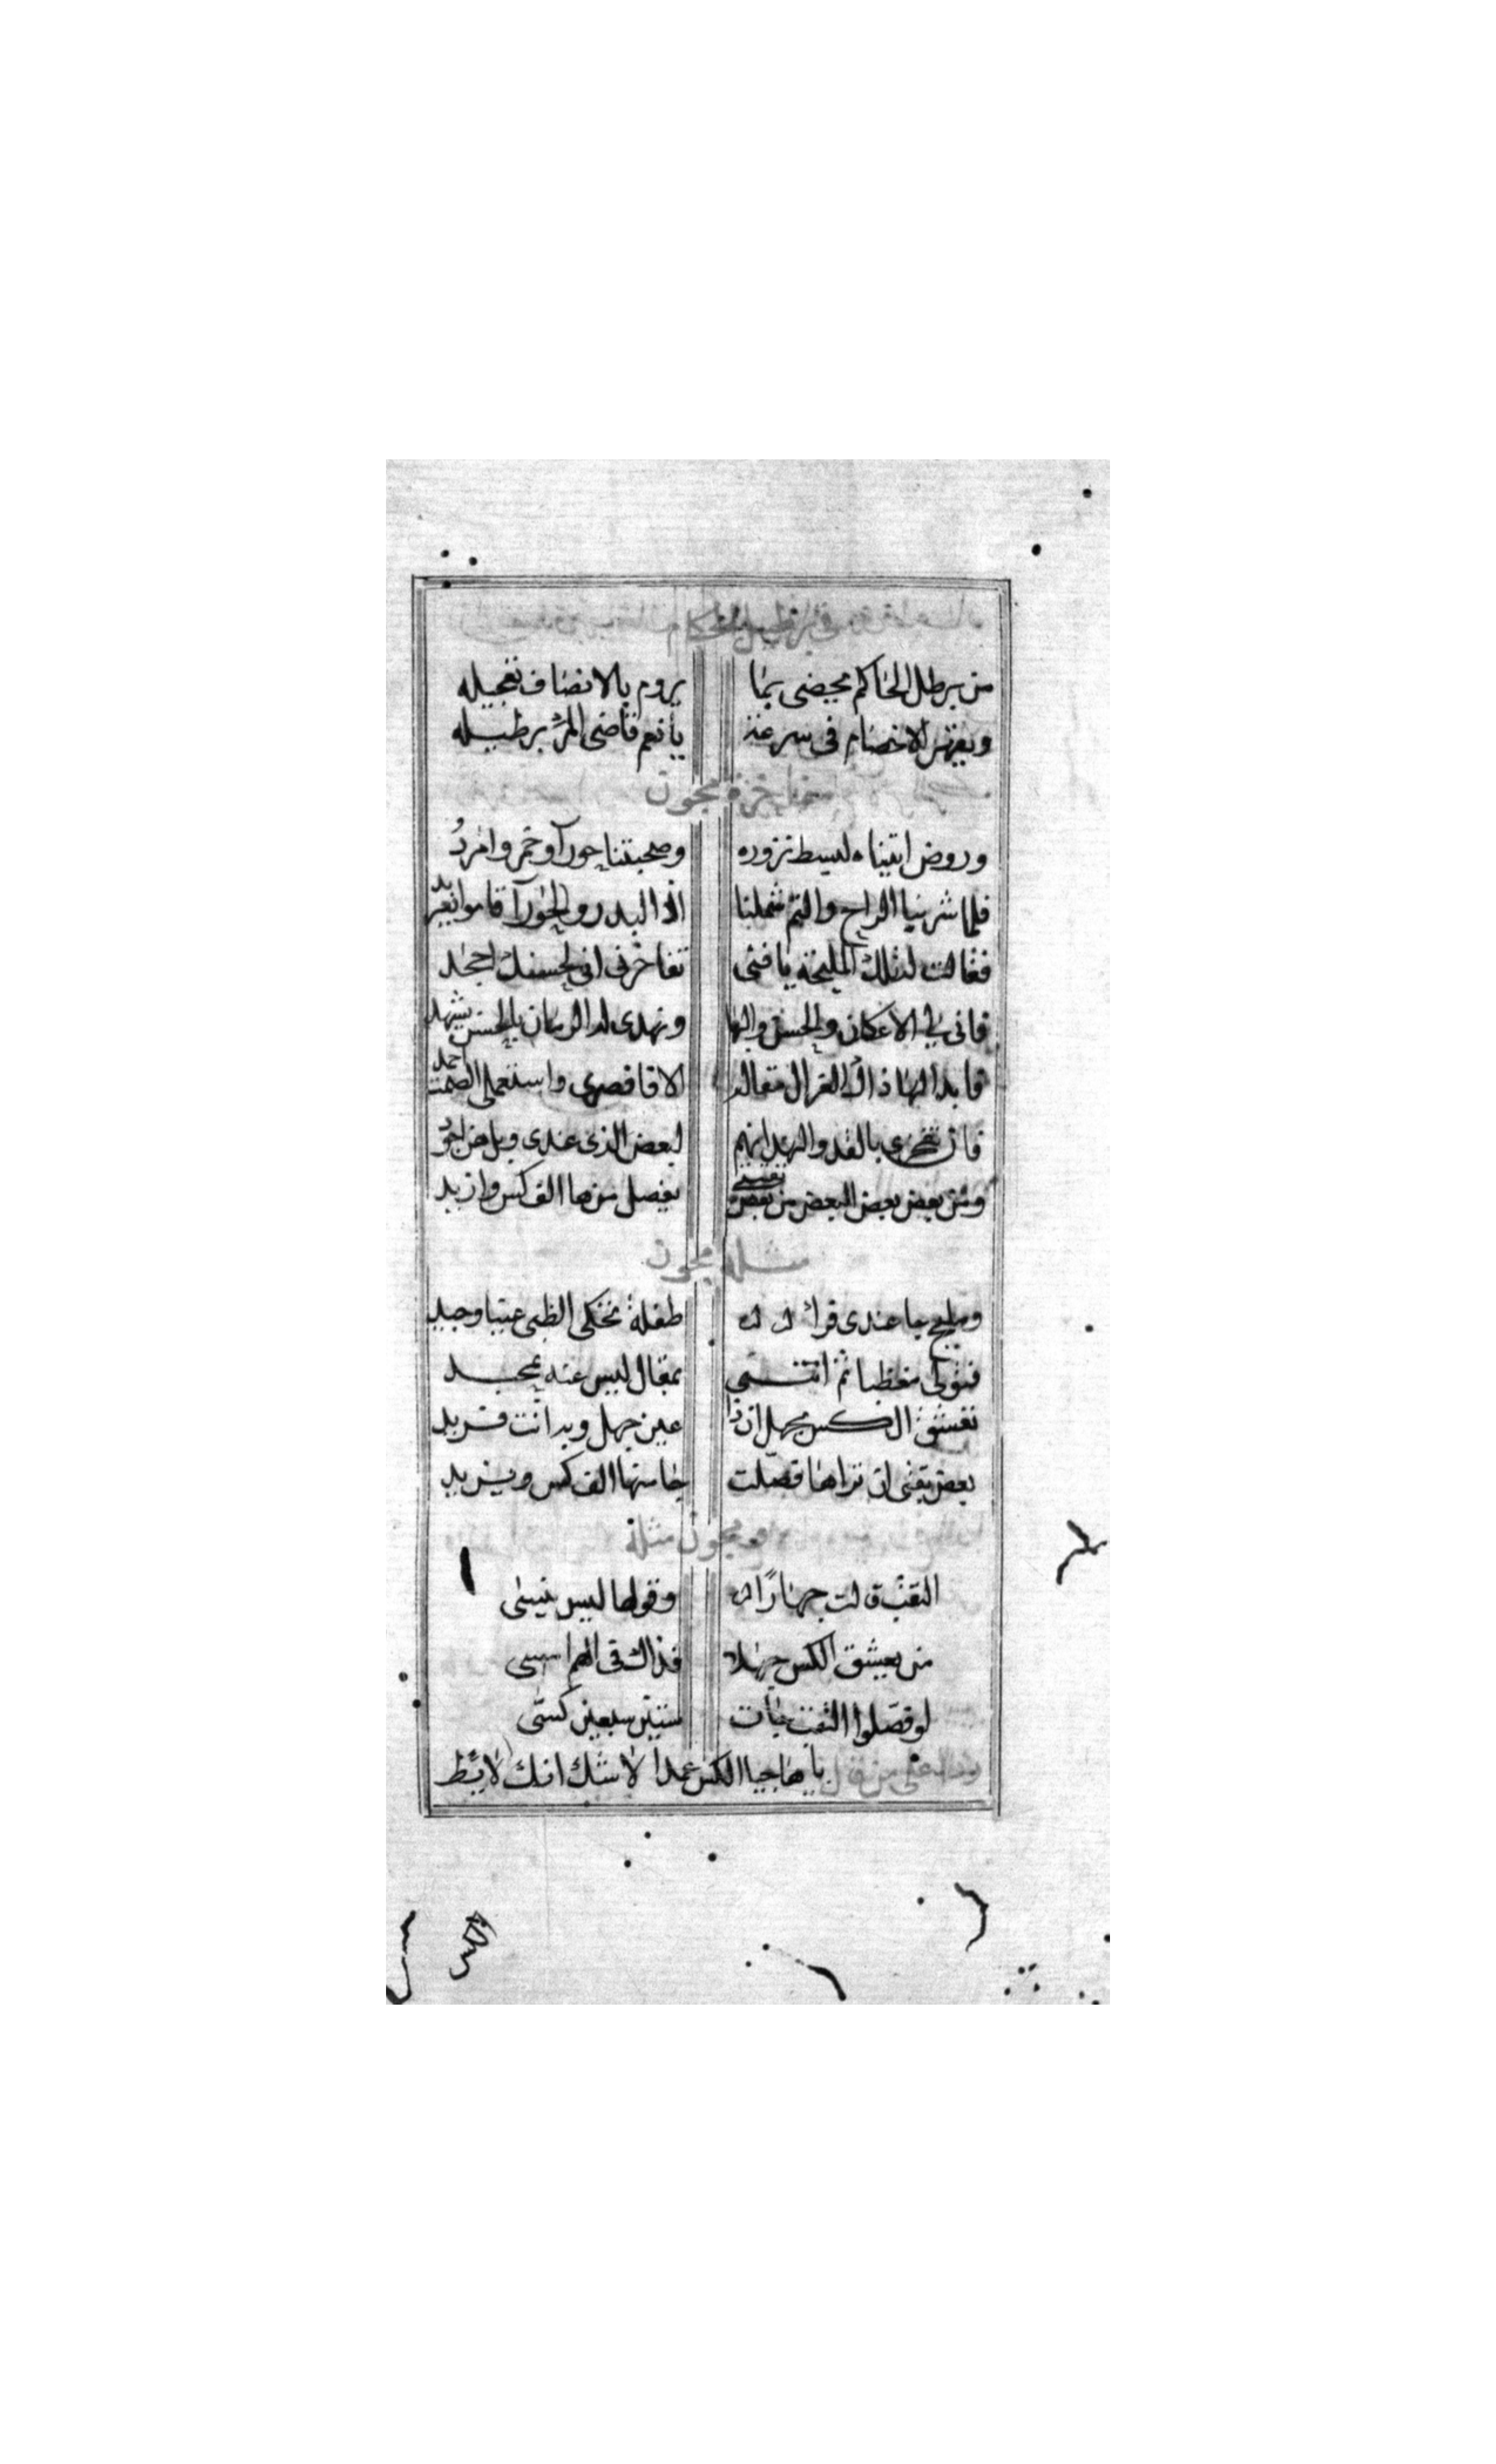 من يبرطل الحاكم يحضى بما يروم بالانصاف تعجيله
ويقهر الاخصام في سرعة يا نعم قاضي المرء برطيله
مجون
وروض اتيناه لبسط نزوره وصحبتنا حورآ وخمر وامردُ
فلما شربنا الراح والتم شملنا اذ البدر والحورآ قاموا
فقالت لتلك المليحة يا فتى تفاخرني اني لحسنك اجحد
فاني لي الاعكان والحسن والبها ونهدي له الرمان بالحسن يشهد
فابدا لها ذاك الغزال مقاله الا فاقصري واستعملي الصمت احمد
فان تفخري بالقد والنهد انهم لبعض الذي عندي
ومن بعض بعض البعض من بعض يفصل منها الف كس وازيد
مثله مجون
ومليح جا عندي طفلة تحكي الظبي عينا وجيد
فتولى مغظبا ثم انثنى بمقال ليس عنه
تعشق الكس بجهل ان ذا عين جهل وبه انت فريد
بعض ان تراها فصلت جا منها الف كس ويزيد
مجون مثله
الثقب قالت جهارًا وقولها ليس ينسى
من يعشق الكس جهلا فذاك في الهم امسى
لو فصلوا الثقب بانت ستين سبعين كسّى
وله على من قال يا هاجيا الكس عمدا لا شك انك لايط
الكس